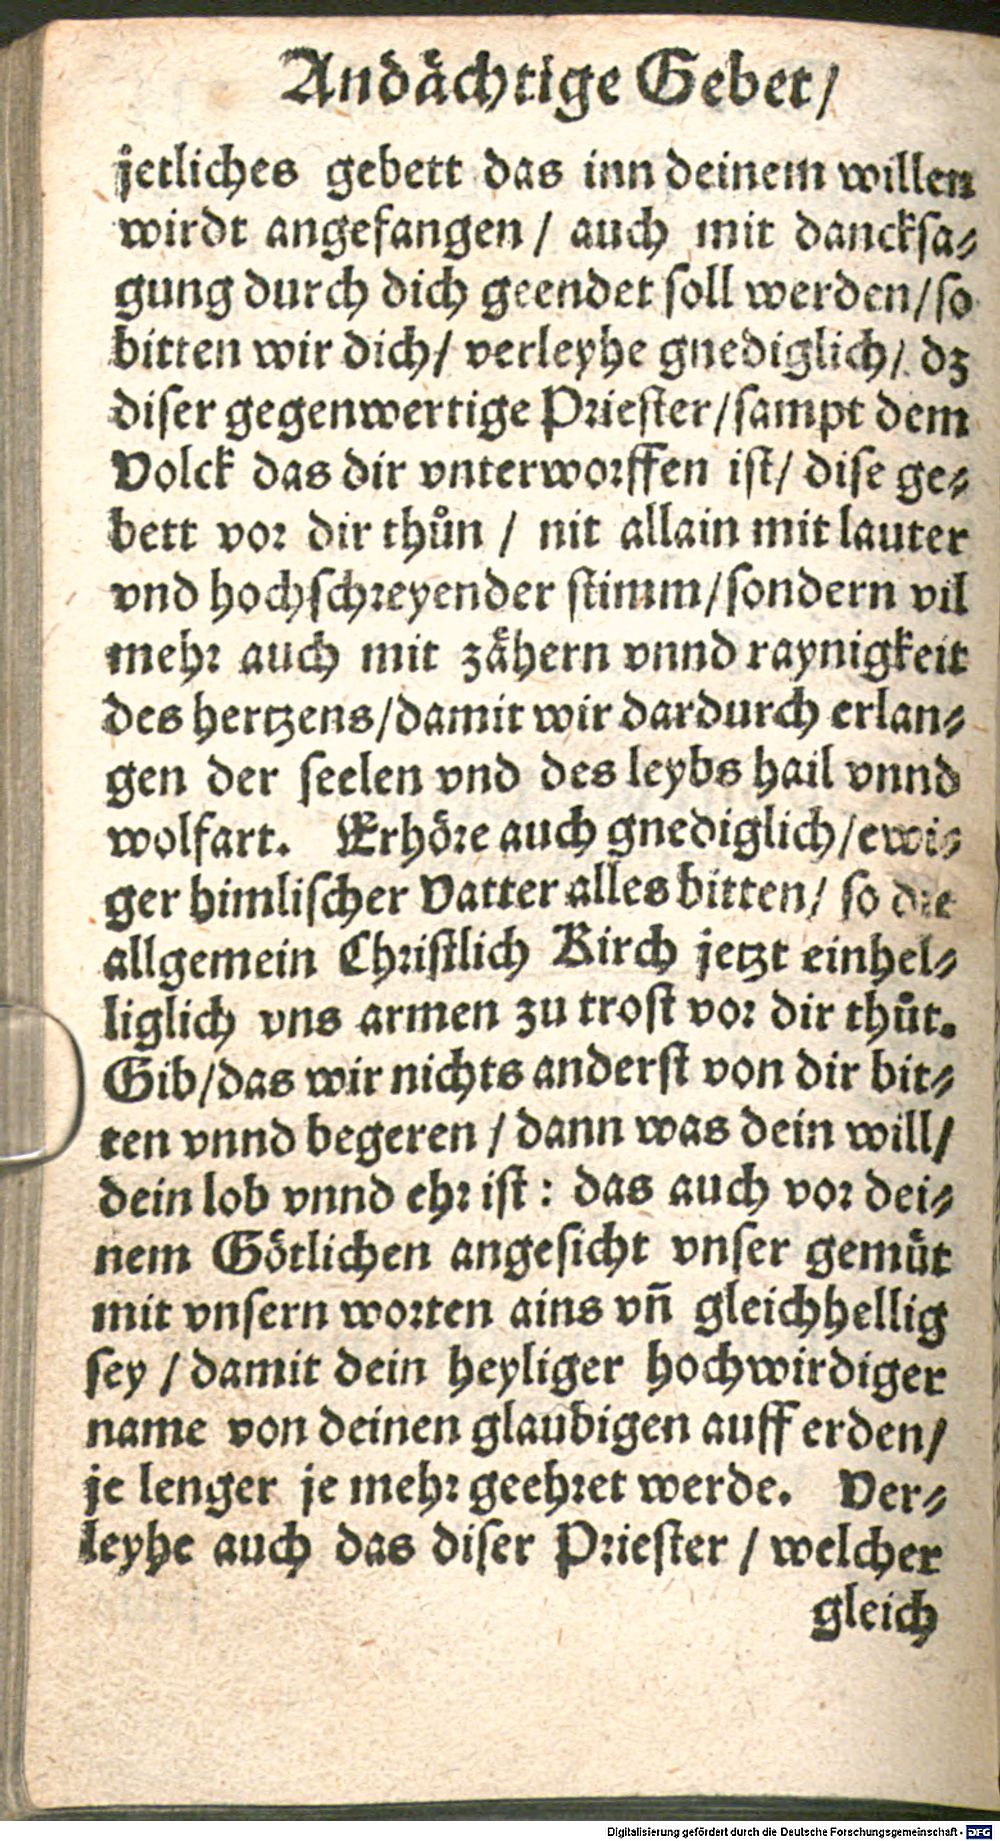 Andaͤchtige Gebet/
jetliches gebett das inn deinem willen
wirdt angefangen / auch mit danckſa⸗
gung durch dich geendet ſoll werden/ſo
bitten wir dich/ verleyhe gnediglich/ dz
diſer gegenwertige Prieſter/ſampt dem
Volck das dir vnterworffen iſt/ diſe ge⸗
bett vor dir thuͦn / nit allain mit lauter
vnd hochſchreyender ſtimm/ſondern vil
mehr auch mit zaͤhern vnnd raynigkeit
des hertzens/damit wir dardurch erlan⸗
gen der ſeelen vnd des leybs hail vnnd
wolfart. Erhoͤre auch gnediglich/ewi⸗
ger himliſcher Vatter alles bitten/ ſo die
allgemein Chriſtlich Kirch jetzt einhel⸗
liglich vns armen zu troſt vor dir thuͦt.
Gib/das wir nichts anderſt von dir bit⸗
ten vnnd begeren / dann was dein will/
dein lob vnnd ehr iſt : das auch vor dei⸗
nem Goͤtlichen angeſicht vnſer gemuͤt
mit vnſern worten ains vn̄ gleichhellig
ſey / damit dein heyliger hochwirdiger
name von deinen glaubigen auff erden/
je lenger je mehr geehret werde. Ver⸗
leyhe auch das diſer Prieſter / welcher
gleich
Digitalisierung gefördert durch die Deutsche Forschungsgemeinschaft - DFG